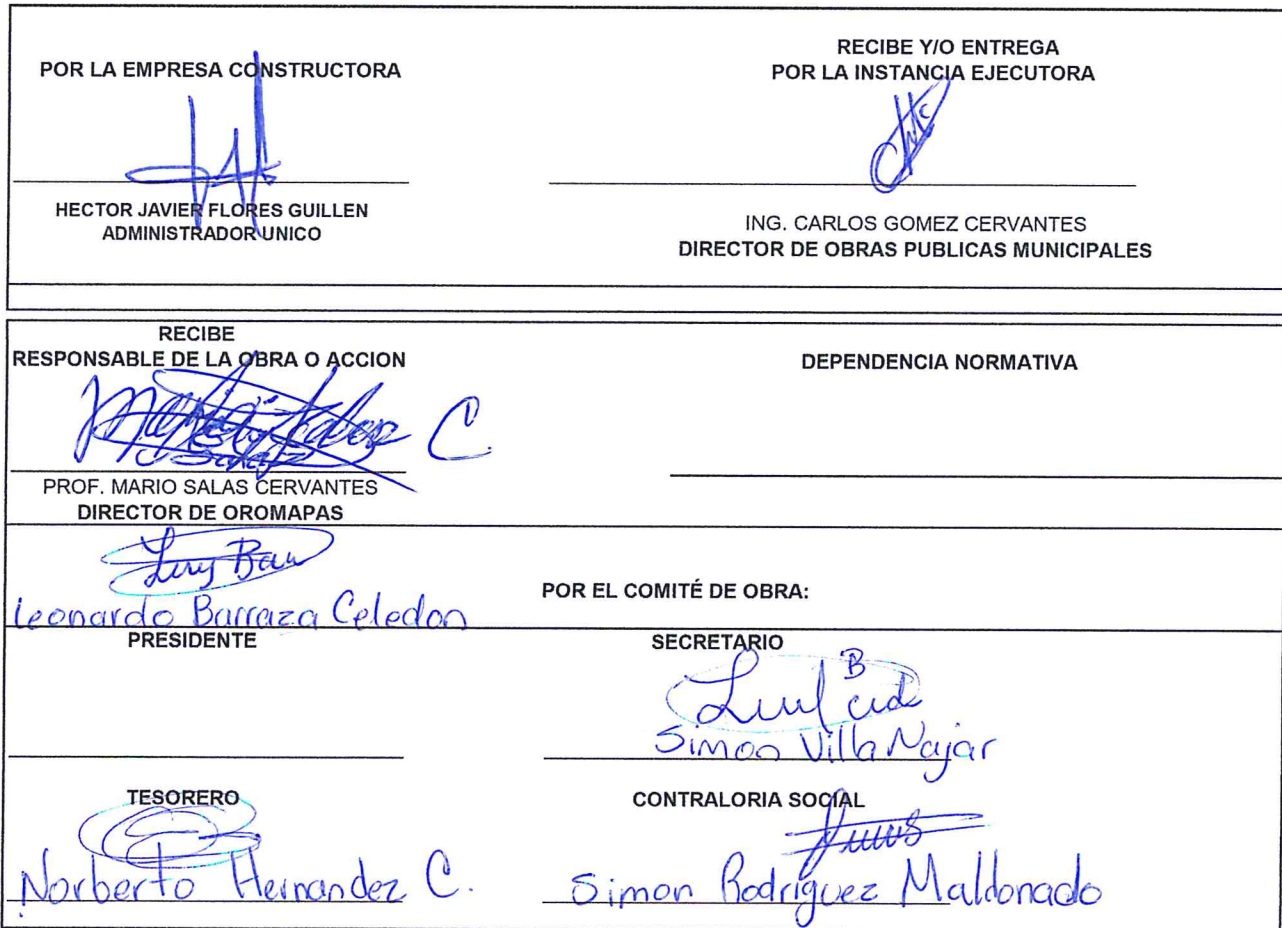 POR LA EMPRESA CONSTRUCTORA
HECTOR JAVIER FLORES GUILLEN
ADMINISTRADOR UNICO
RECIBE Y/O ENTREGA
POR LA INSTANCIA EJECUTORA
ING. CARLOS GOMEZ CERVANTES
DIRECTOR DE OBRAS PUBLICAS MUNICIPALES
RECIBE
RESPONSABLE DE LA OBRA O ACCION
C.
PROF. MARIO SALAS CERVANTES
DIRECTOR DE OROMAPAS
DEPENDENCIA NORMATIVA
Leonardo Barraza Celedon
POR EL COMITÉ DE OBRA:
PRESIDENTE
SECRETARIO
B
Simon Villa Najar
TESORERO
Norberto Hernandez C.
CONTRALORIA SOCIAL
Simon Rodriguez Maldonado